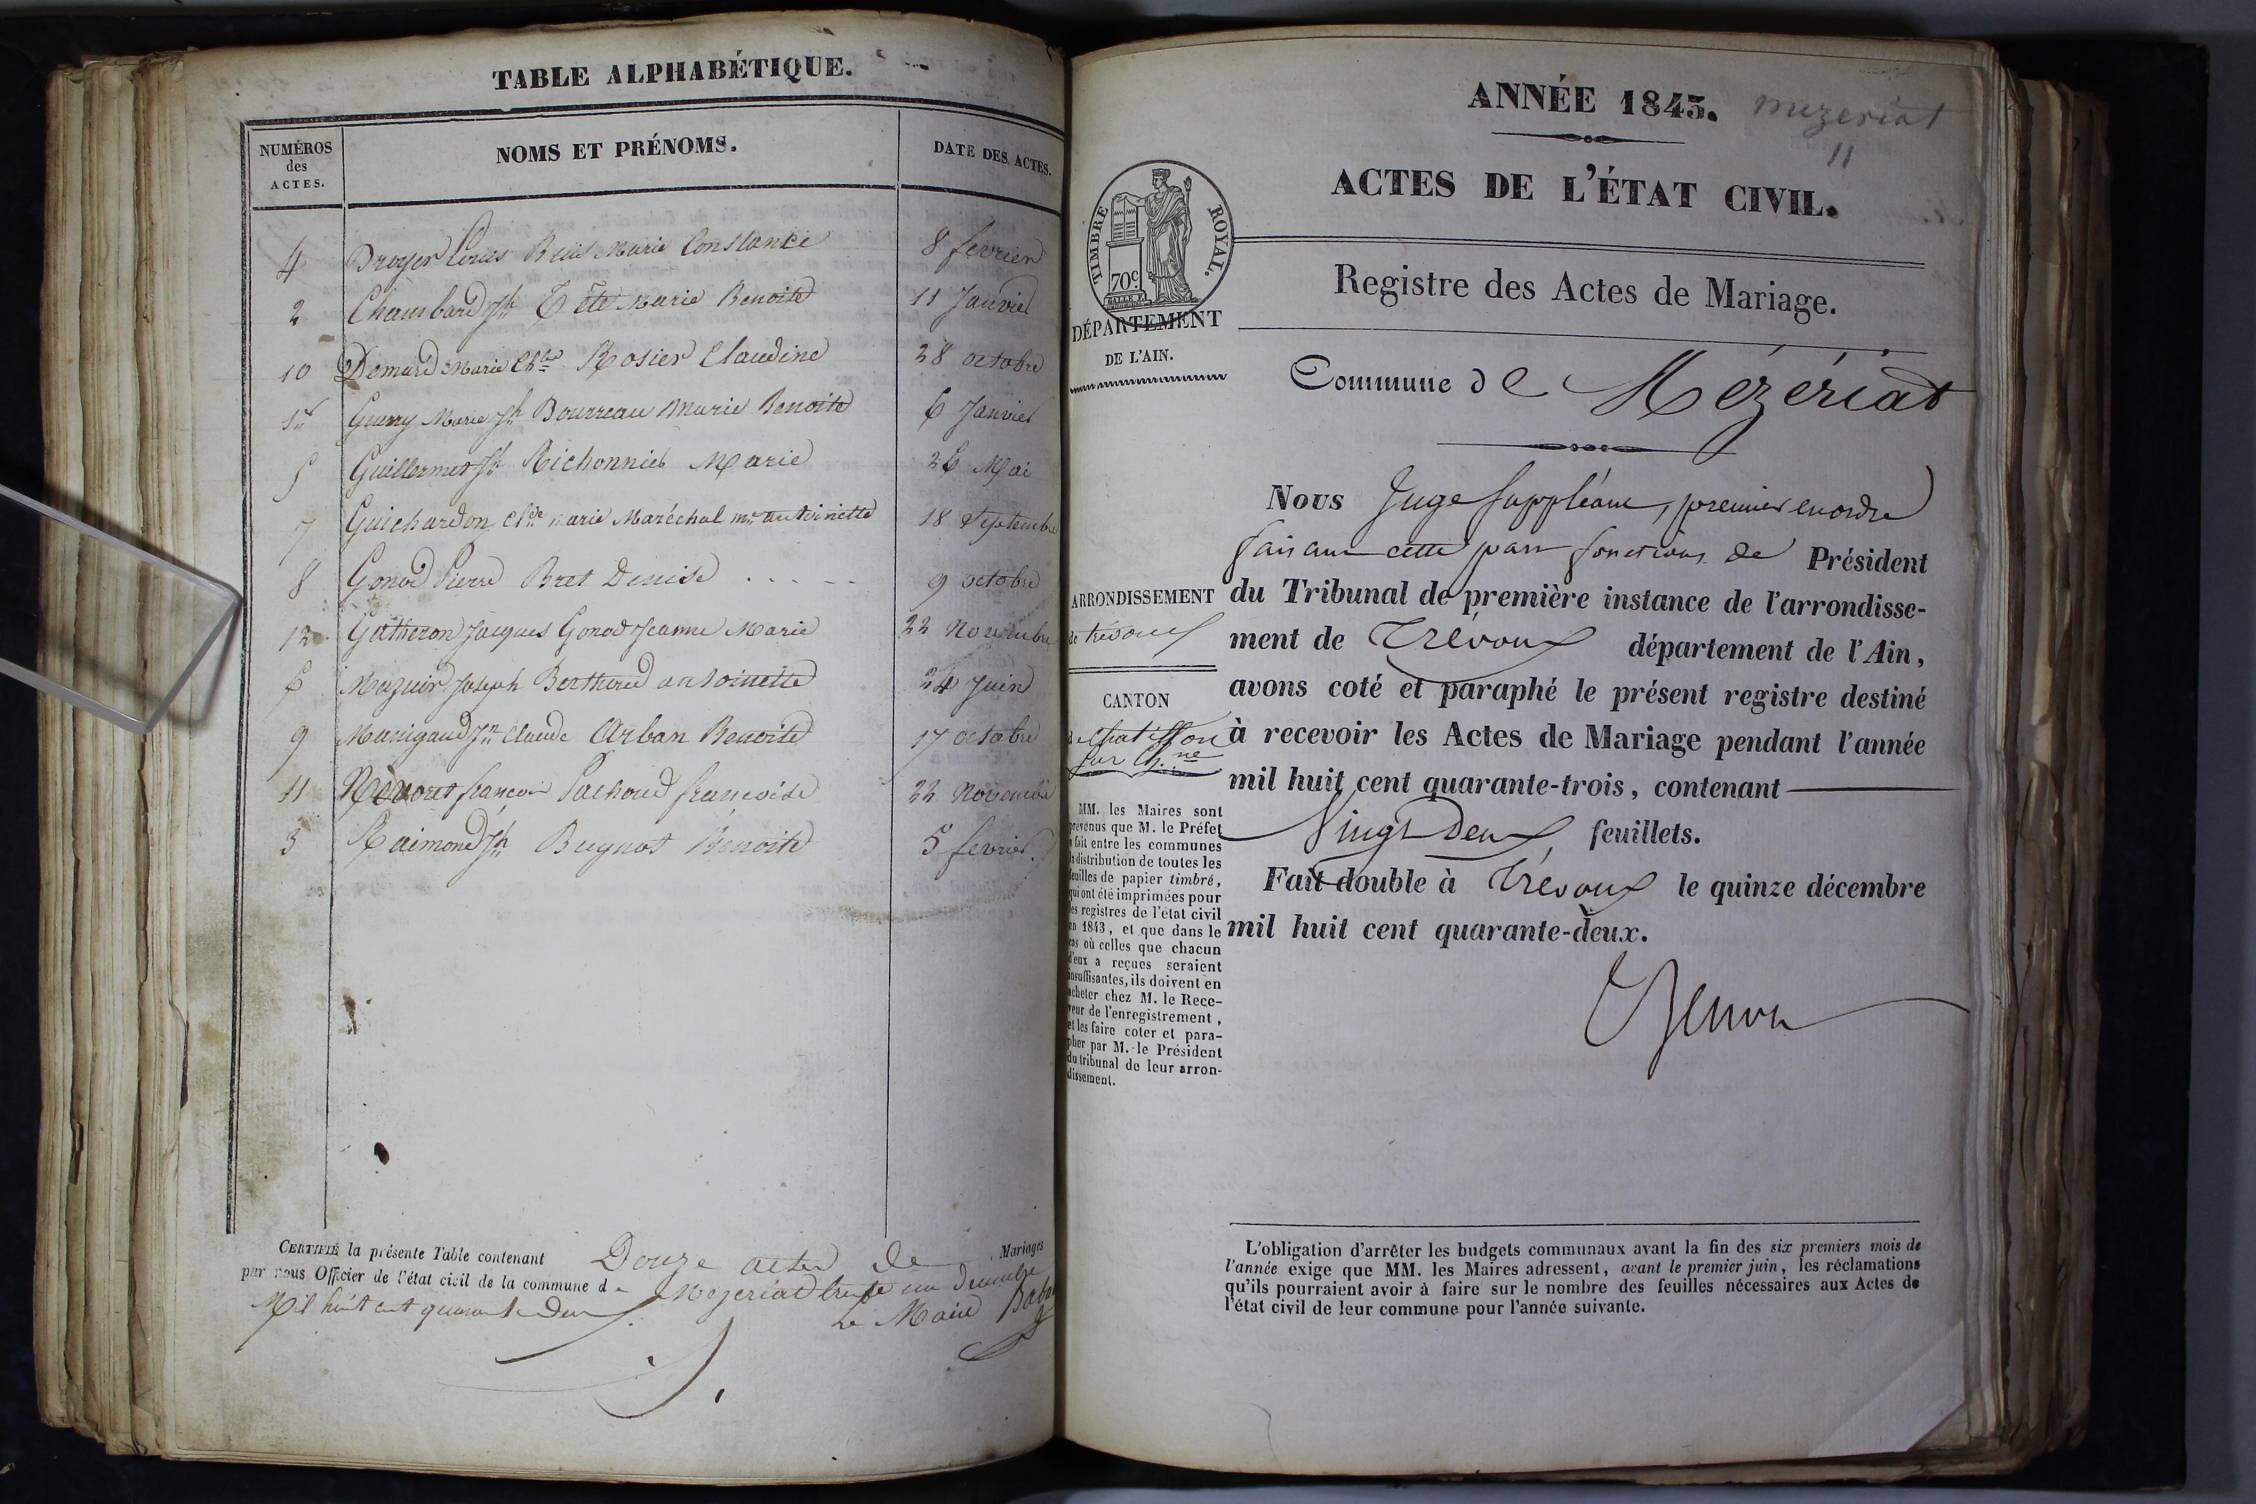 TABLE ALPHABÉTIQUE.
NUMÉROS des ACTES. NOMS ET PRÉNOMS. DATE DES ACTES.
4 Droyer Louis Marie Constance 8 fevrier
2 Chambard Jh Tête Marie Benoite 11 Janvier
10 Demard Marie Rosier Claudine 28 octobre
1er Guerry Marie Jh Bourreau Marie Benoite 6 Janvier
5 Guillermet Jh Richonnier Marie 26 Mai
7 Guichardon Marie Maréchal mie antoinette 18 Septembre
8 Gonod Pierre Bret Denise . . . . . 9 octobre
12 Gutheron Jacques Gonod Jeanne Marie 22 Novembre
6 Mazuir Joseph Berthoud antoinette 24 Juin
9 Manigaud Jn Claude Arban Benoite 17 octobre
11 francois Pachoud francoise 22 Novembre
3 Raimond Jh Bugnot Benoite 5 fevrier
CERTIFIÉ la présente Table contenant Douze actes de Mariages
par nous Officier de l'état civil de la commune de Mezeriat trente un Decembre
Mil huit cent quarante Deux
Le Maire
ANNÉE 1843. mezeriat
11
ACTES DE L'ÉTAT CIVIL.
TIMBRE ROYAL.
70c
Registre des Actes de Mariage.
DÉPARTEMENT
DE L'AIN.
Commune de Mézériat
Nous Juge Suppléant, premier en ordre
faisant cette part fonctions de Président
du Tribunal de première instance de l'arrondisse-
ment de Trévoux département de l'Ain,
avons coté et paraphé le présent registre destiné
à recevoir les Actes de Mariage pendant l'année
mil huit cent quarante-trois, contenant
Vingt Deux feuillets.
Fait double à Trévoux le quinze décembre
mil huit cent quarante-deux.
ARRONDISSEMENT
de Trévoux
CANTON
de Chatillon
sur Ch.ne
MM. les Maires sont
prévenus que M. le Préfet
a fait entre les communes
la distribution de toutes les
feuilles de papier timbré,
qui ont été imprimées pour
les registres de l'état civil
en 1843, et que dans le
cas où celles que chacun
d'eux a reçues seraient
insuffisantes, ils doivent en
acheter chez M. le Rece-
veur de l'enregistrement,
et les faire coter et para-
pher par M. le Président
du tribunal de leur arron-
dissement.
L'obligation d'arrêter les budgets communaux avant la fin des six premiers mois de
l'année exige que MM. les Maires adressent, avant le premier juin, les réclamations
qu'ils pourraient avoir à faire sur le nombre des feuilles nécessaires aux Actes de
l'état civil de leur commune pour l'année suivante.